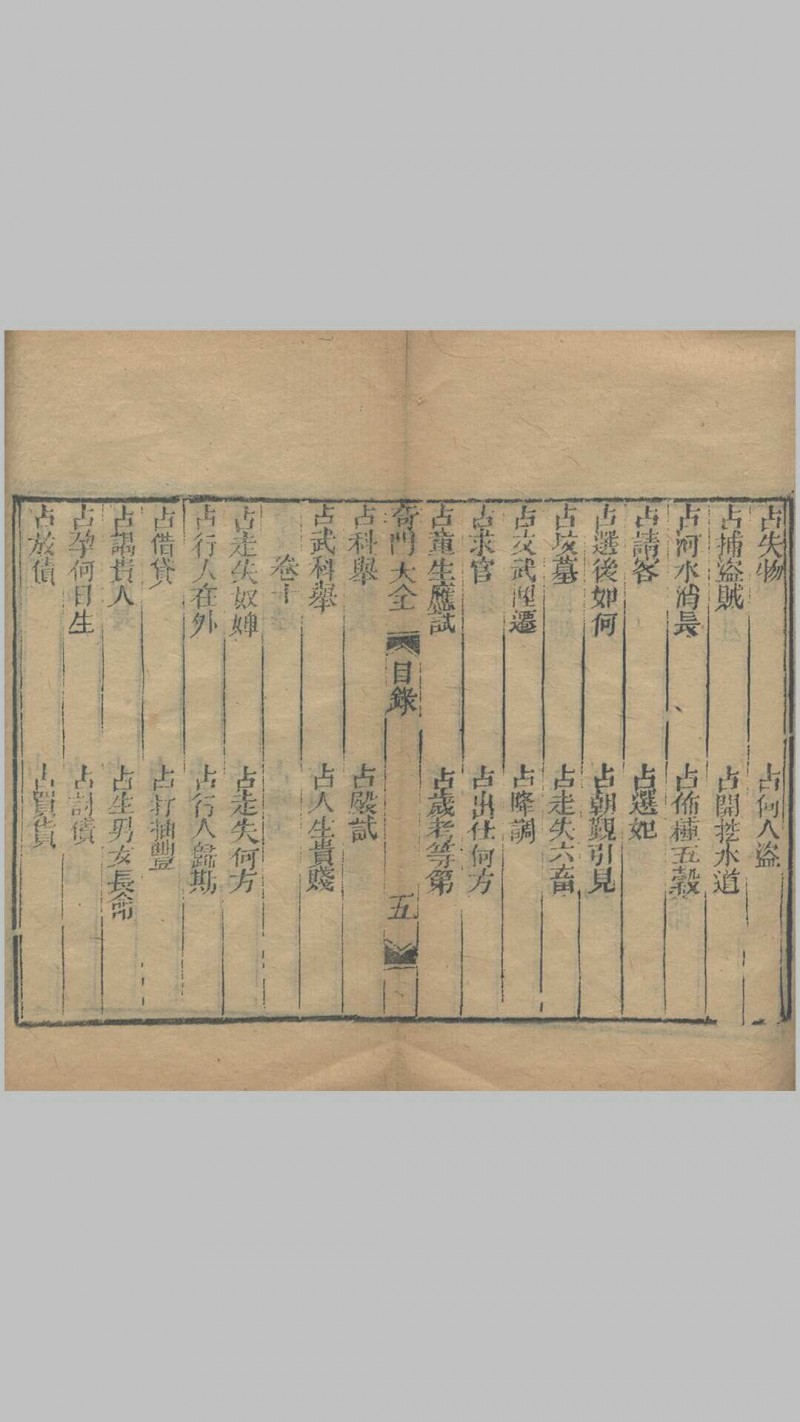 占失物 占何人盜
占捕盜賊 占開挖水道
占河水消長 占佈種五穀
占請客 占選妃
占選後如何 占朝觐引見
占墳墓 占走失六畜
占文武陞遷 占降調
占求官 占出仕何方
占童生應試 占歲考等第
奇門大全 目錄 五
占科舉 占殿試
占武科舉 占人生貴賤
卷十
占走失奴婢 占走失何方
占行人在外 占行人歸期
占借貸 占打抽豐
占謁貴人 占生男女長命
占孕何日生 占討債
占放債 占買貨